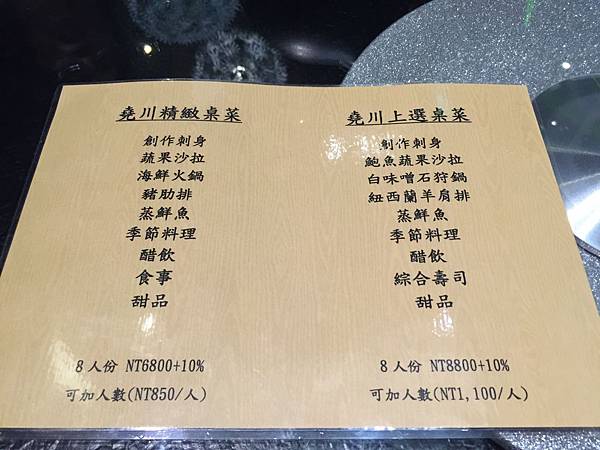 堯川精緻桌菜
創作刺身
蔬果沙拉
海鮮火鍋
豬肋排
蒸鮮魚
季節料理
醋飲
食事
甜品
8人份 NT6800+10%
可加人數(NT850/人)
堯川上選桌菜
創作刺身
鮑魚蔬果沙拉
白味噌石狩鍋
紐西蘭羊肩排
蒸鮮魚
季節料理
醋飲
綜合壽司
甜品
8人份 NT8800+10%
可加人數(NT1,100/人)